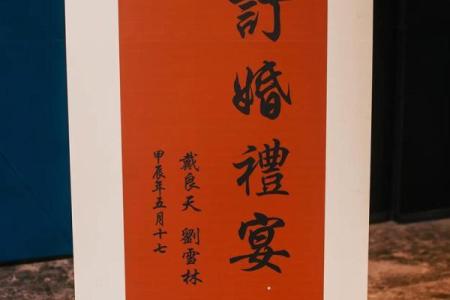 訂婚禮宴
戴良天 劉雪林
甲辰年五月十七